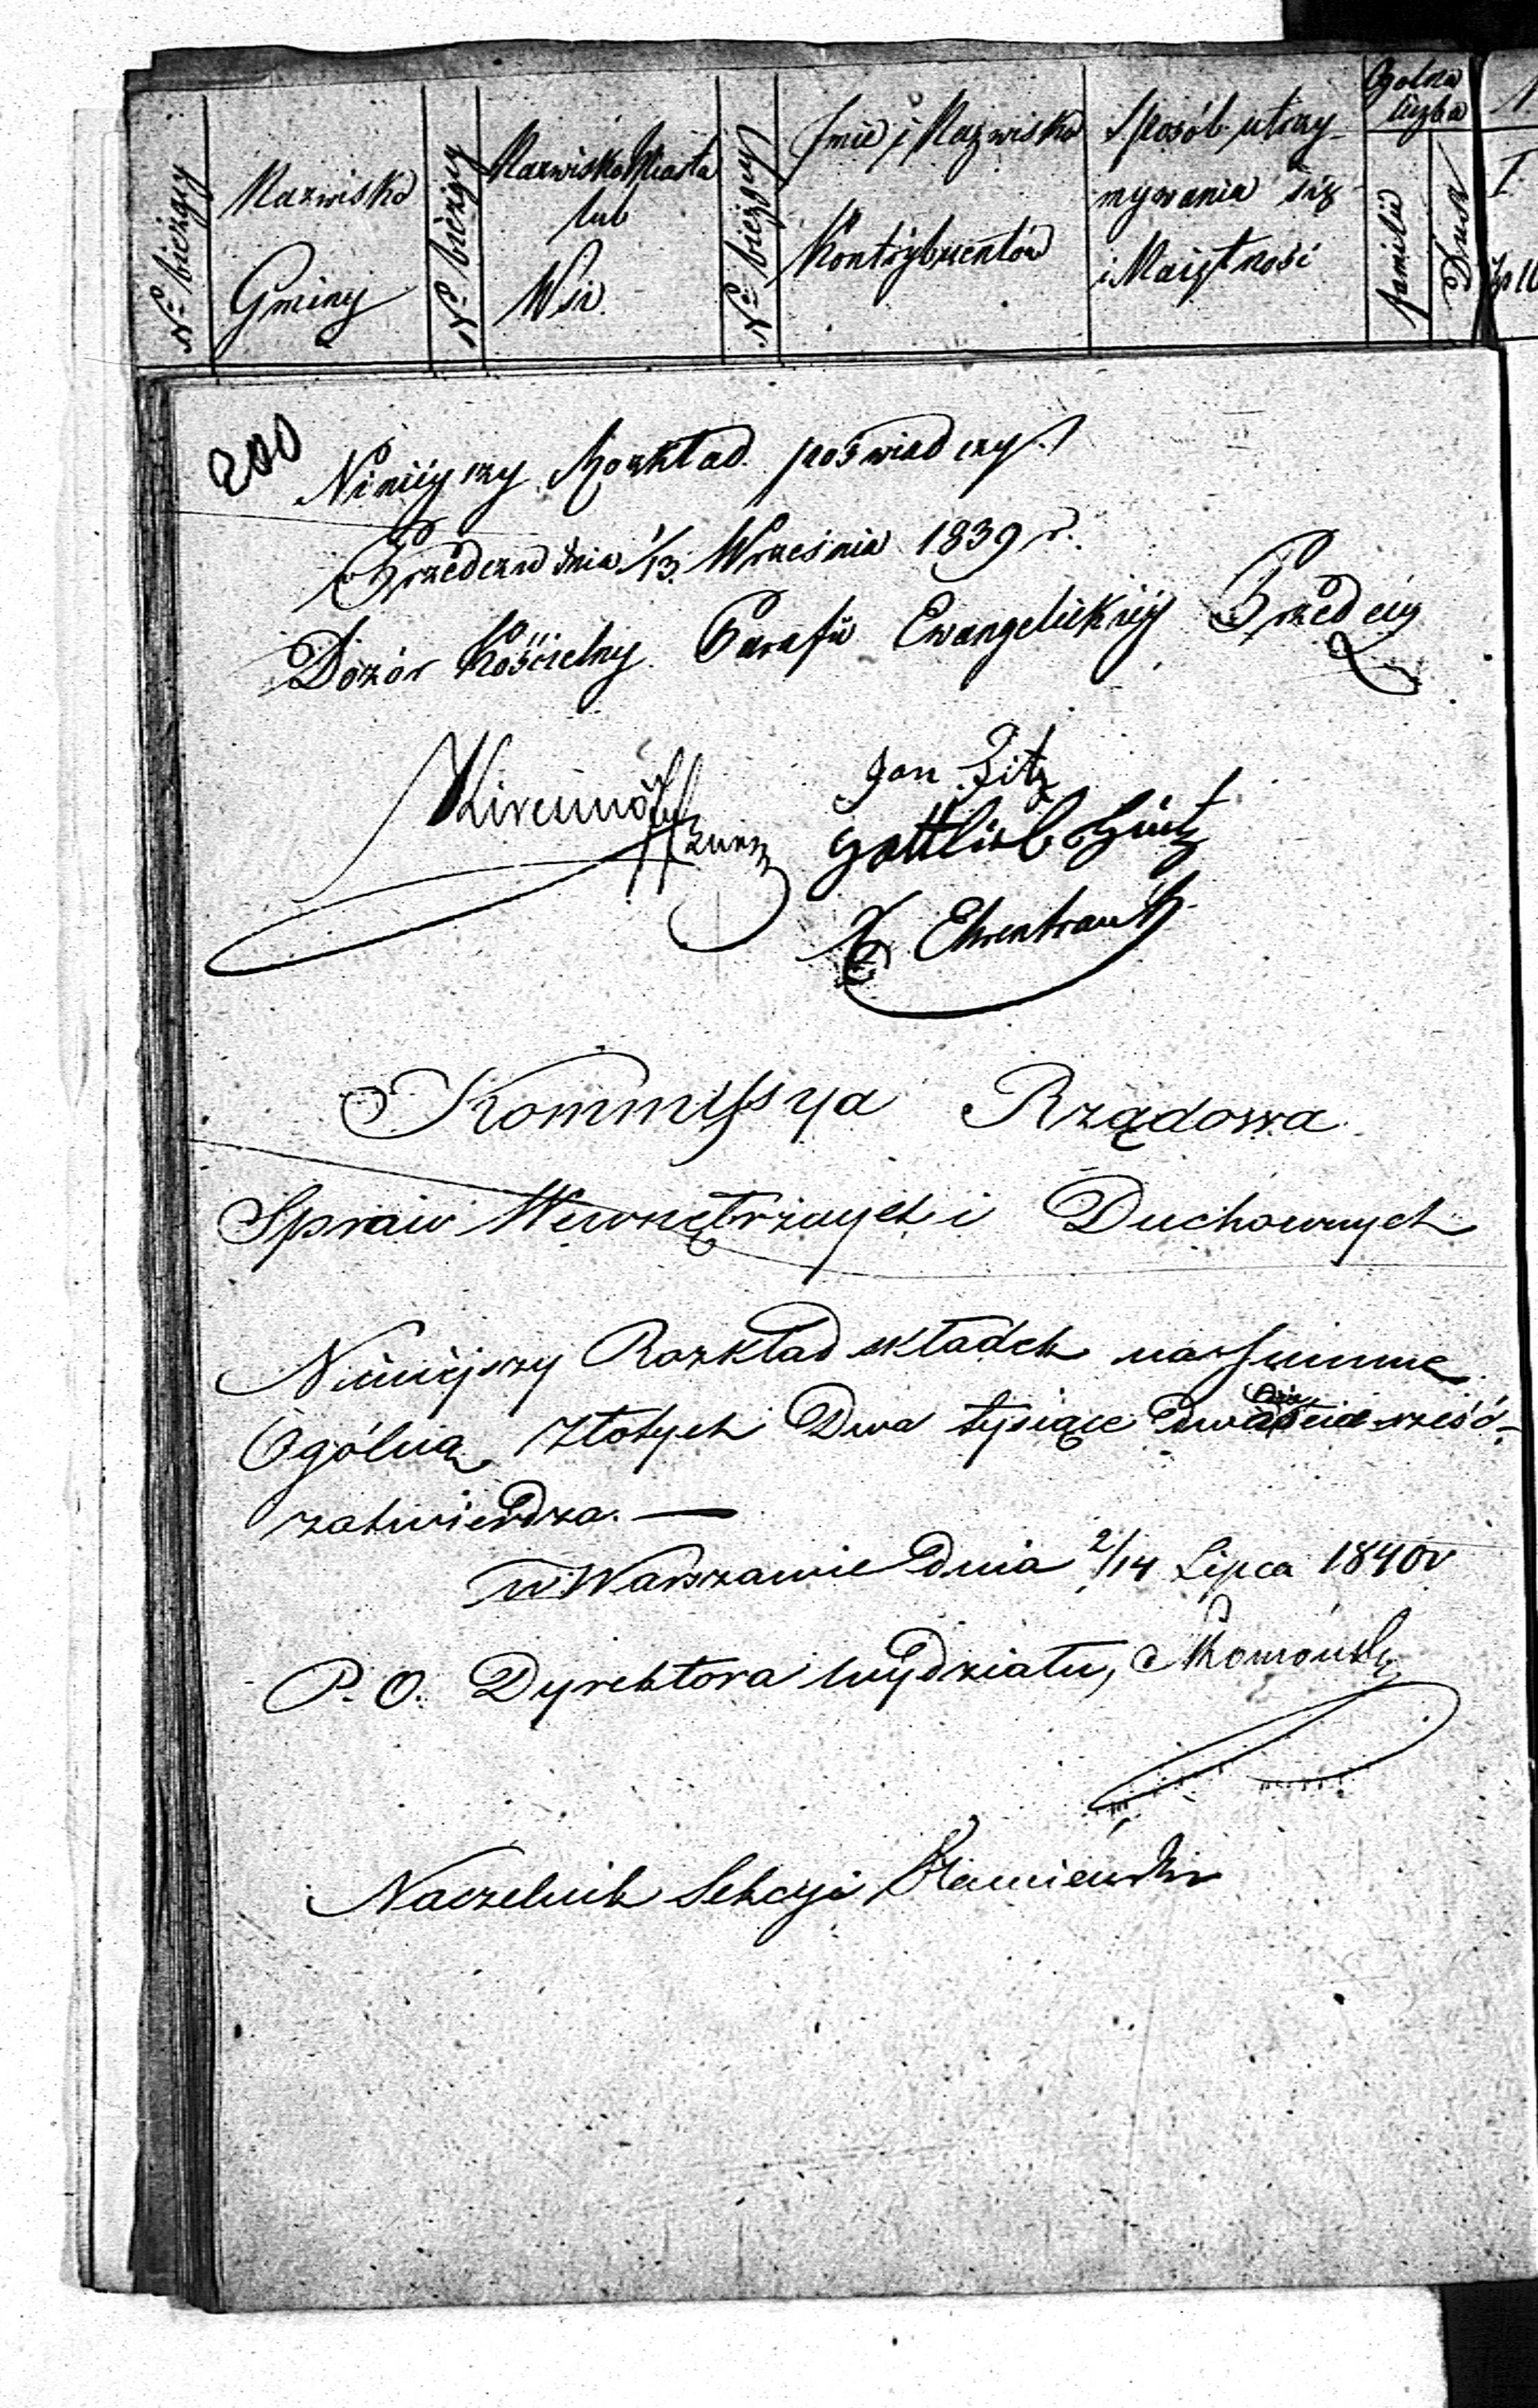 Nº bieżący
Nazwisko
Gminy
Nº bieżący
Nazwisko Miasta
lub
Wsi.
Nº bieżący
Imie i Nazwisko
Kontrybuentów
Sposób utrzy-
mywania się
i Maiętność
Ogolna
liczba
Familii
Dusz
I
200
Ninieyszy Rozkład poświadczy
w Przedczu dnia 1/13. Września 1839 r.
Dozór Kościelny Parafii Ewangelickiéy Przedecz
Jan
Gottlieb
Ehrentraut
Kommissya Rządowa
Spraw Wewnętrznych i Duchownych
Niniejszy Rozkład składek na Summę
Ogólną Złotych Dwa tysiące sześć
zatwierdza. —
w Warszawie dnia 2/14 Lipca 1840 r
P. O. Dyrektora Wydziału,
Naczelnik Sekcyi